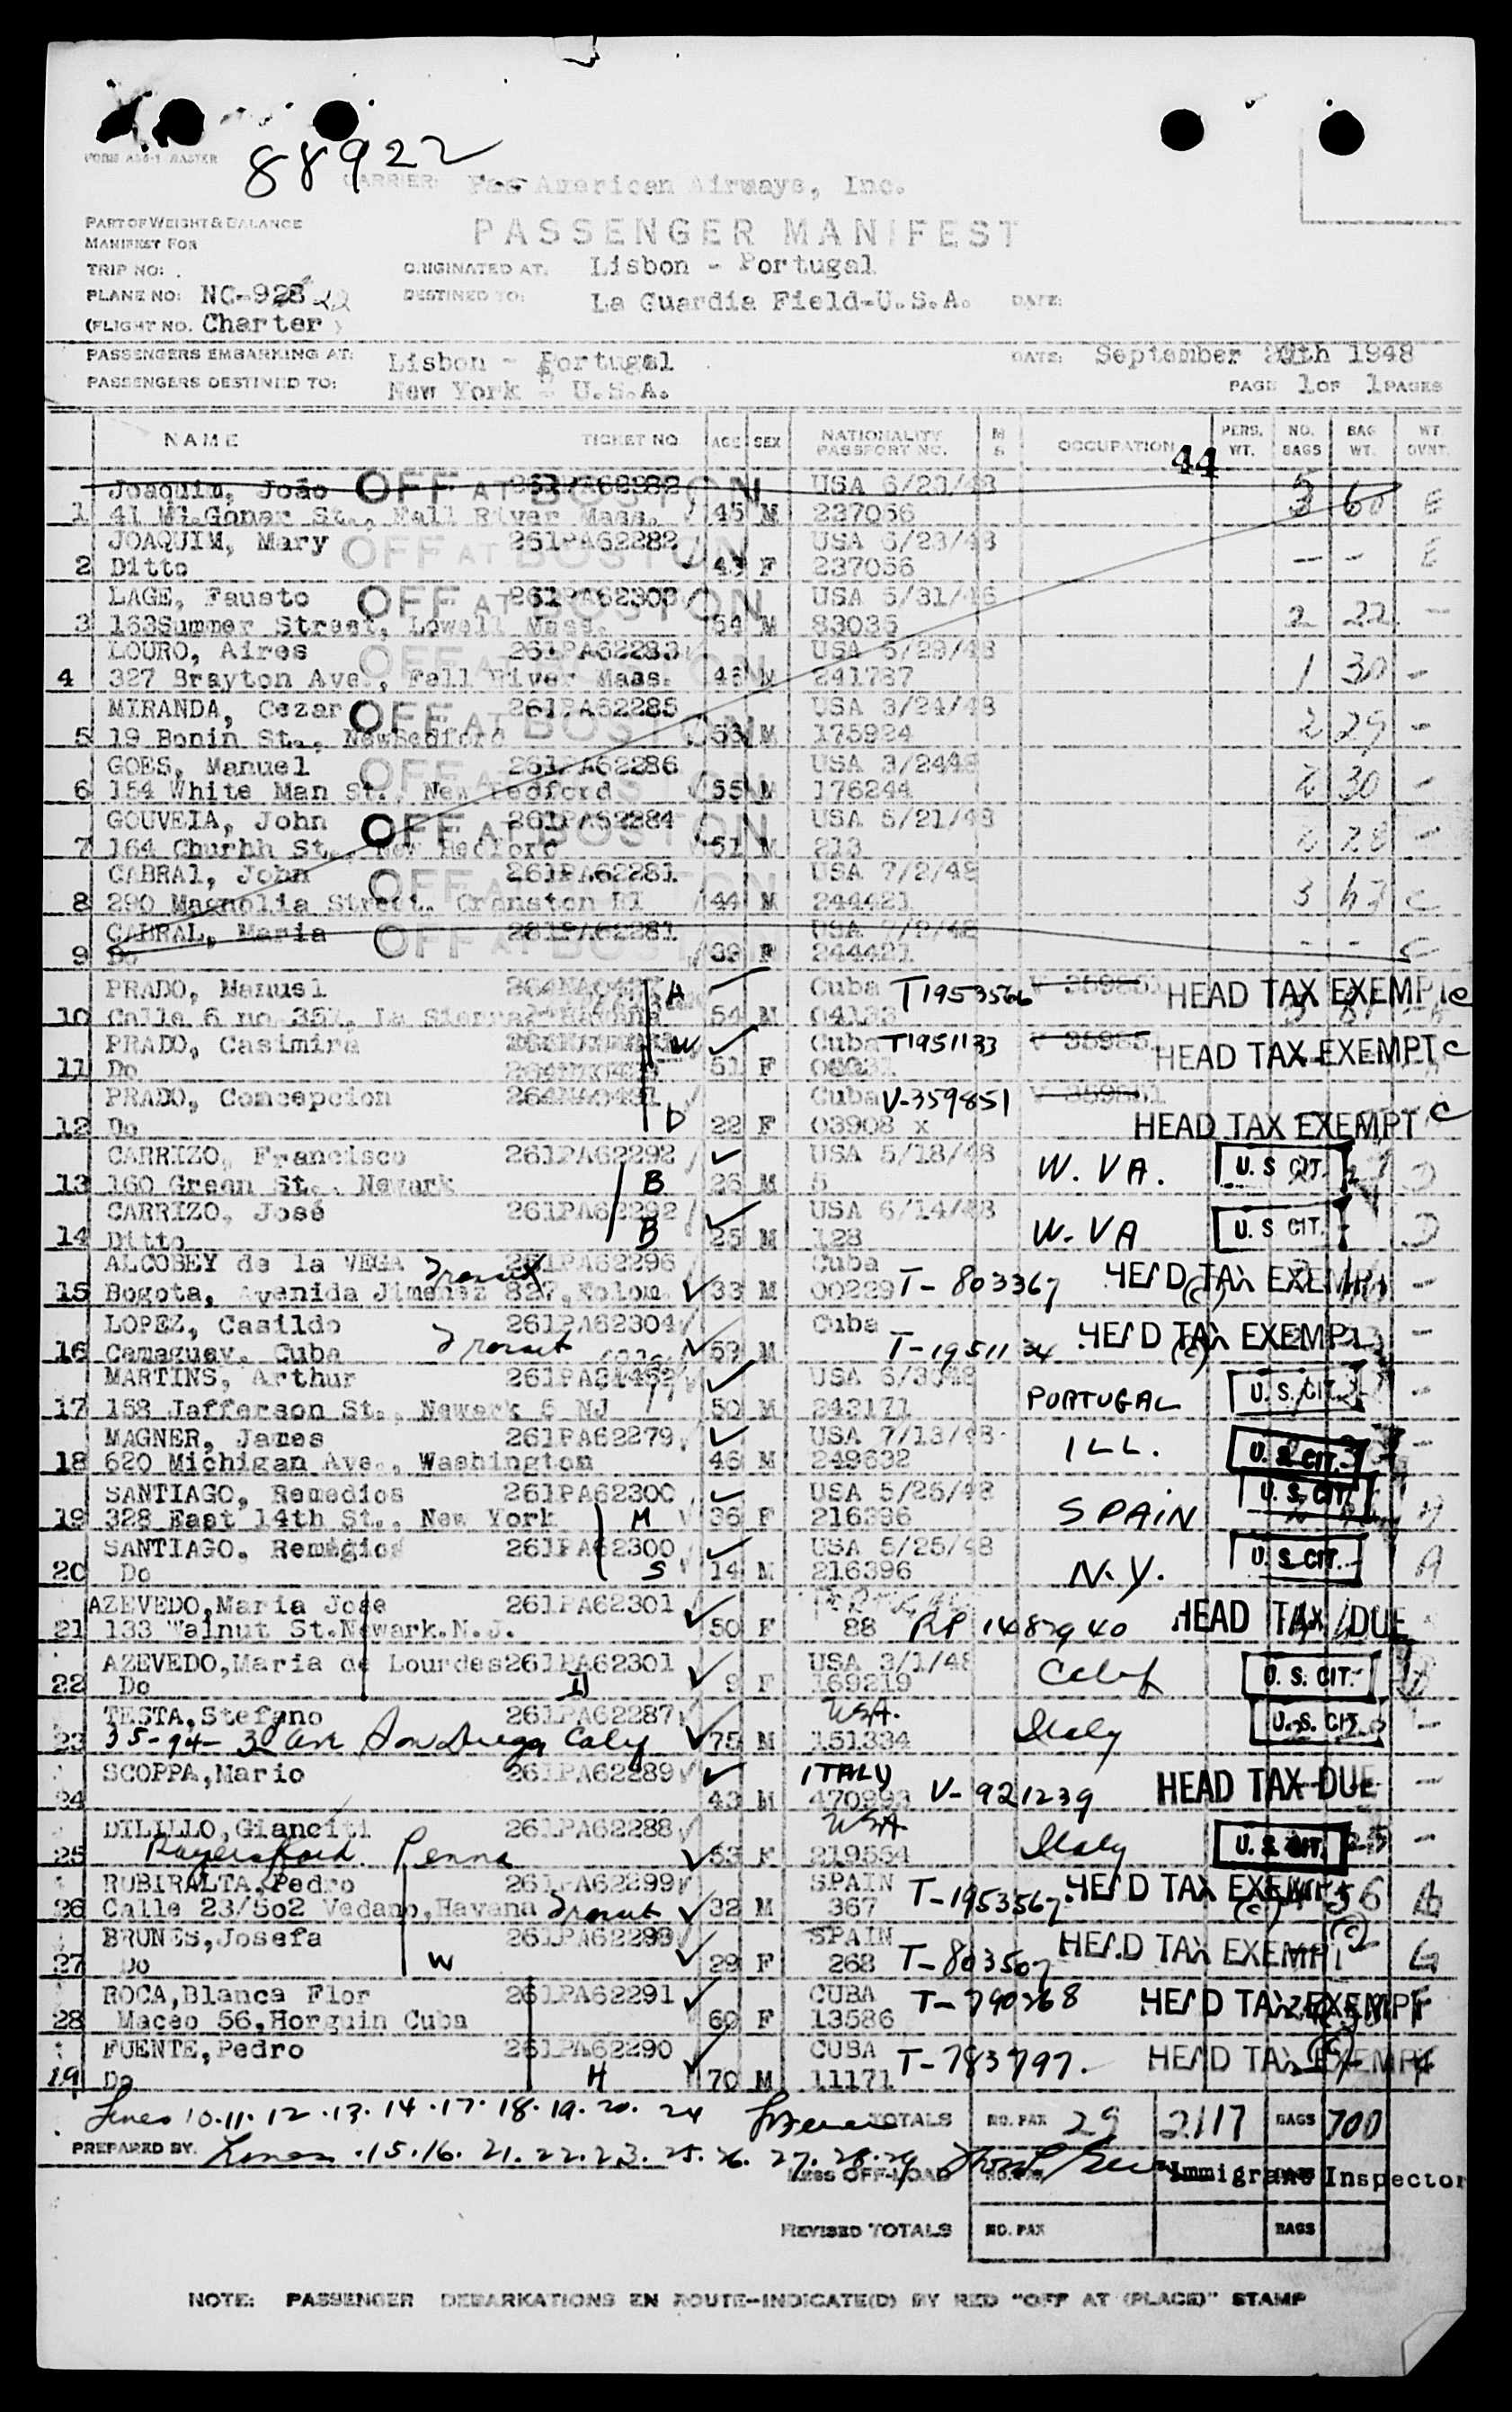 88922
CARRIER: Pan American Airways, Inc.
PART OF WEIGHT & BALANCE
MANIFEST FOR
PASSENGER MANIFEST
TRIP NO:
ORIGINATED AT: Lisbon - Portugal
PLANE NO: NC-928
DESTINED TO: La Guardia Field-U.S.A. DATE:
(FLIGHT NO. Charter )
PASSENGERS EMBARKING AT: Lisbon - Portugal DATE: September 20th 1948
PASSENGERS DESTINED TO: New York - U.S.A. PAGE 1 OF 1 PAGES
NAME TICKET NO AGE SEX NATIONALITY PASSPORT NO. M S OCCUPATION 44 PERS. WT. NO. BAGS BAG WT. WT. OVNT.
Joaquim, João OFF AT BOSTON 261PA62282 USA 6/23/48 60 E
1 41 St., Fall River Mass. 45 M 237056
JOAQUIM, Mary OFF AT BOSTON 261PA62282 USA 6/23/48 - - E
2 Ditto 43 F 237056
LAGE, Fausto OFF AT BOSTON 261PA62303 USA 5/31/46 2 22 -
3 163Summer Street, Lowell Mass. 54 M 83035
LOURO, Aires OFF AT BOSTON 261PA62283 USA 6/29/48 1 30 -
4 327 Brayton Ave., Fall River Mass. 46 M 241787
MIRANDA, Cezar OFF AT BOSTON 261PA62285 USA 3/24/48 2 29 -
5 19 Bonin St., NewBedford 53 M 175924
GOES, Manuel OFF AT BOSTON 261PA62286 USA 3/2448 2 30 -
6 154 White Man St., New Bedford 55 M 176244
GOUVEIA, John OFF AT BOSTON 261PA62284 USA 5/21/48 2 28 -
7 164 Churhh St., New Bedford 51 M 213
CABRAl, John OFF AT BOSTON 261PA62281 USA 7/2/48 3 C
8 290 Magnolia Street, Cranston RI 44 M 244421
CABRAL, Maria OFF AT BOSTON 261PA62281 USA 7/2/48 - - C
9 Do 39 F 244421
PRADO, Manuel A Cuba T1953566 V 359851 HEAD TAX EXEMPT C
10 Calle 6 no 357, La Sierra- Havana 54 M 04133
PRADO, Casimira W Cuba T1951133 HEAD TAX EXEMPT C
11 Do 51 F
PRADO, Comcepcion Cuba V-359851 V 359851
12 Do D 22 F 03908 x HEAD TAX EXEMPT C
CARRIZO, Francisco 261PA62292 USA 5/18/48 W. VA. U. S CIT.
13 160 Green St., Newark B 26 M 5 D
CARRIZO, José 261PA62292 USA 6/14/48 W. VA U. S CIT. D
14 Ditto B 25 M 128
ALCOBEY de la VEGA Transit 261PA62296 Cuba HEAD TAX EXEMPT
15 Bogota, Avenida Jimenez 827, Kolom. 33 M 00229 T-803367 (C) -
LOPEZ, Casildo 261PA62304 Cuba HEAD TAX EXEMPT -
16 Camaguey, Cuba Transit 59 M T-1951134 (C)
MARTINS, Arthur 261PA31462 USA U. S. CIT. -
17 158 Jafferson St., Newark 5 NJ 50 M 242171 PORTUGAL
MAGNER, James 261PA62279 USA 7/13/48 ILL. U. S. CIT. -
18 620 Michigan Ave., Washington 46 M 249632
SANTIAGO, Remedios 261PA62300 USA 5/25/48 U. S. CIT. A
19 328 East 14th St., New York M 36 F 216396 SPAIN
SANTIAGO, Remigios 261PA62300 USA 5/25/48 U. S. CIT. A
20 Do S 14 M 216396 N.Y.
AZEVEDO,Maria Jose 261PA62301 HEAD TAX DUE
21 133 Walnut St.Newark.N.J. 50 F 88 RP 1487940
AZEVEDO,Maria de Lourdes261PA62301 USA 3/1/48 Calif U. S. CIT.
22 Do D 9 F 169219
TESTA,Stefano 261PA62287 USA. Italy U. S. CIT. -
23 35-94-30 Ave San Diego Calif 75 M 151334
SCOPPA,Mario 261PA62289 ITALY HEAD TAX DUE -
24 43 M V-921239
DILILLO,Gianciti 261PA62288 USA Italy U. S. CIT. -
25 Royersford Penna 53 F 219554
RUBIRALTA,Pedro 261PA62299 SPAIN HEAD TAX EXEMPT
26 Calle 23/502 Vedado,Havana Transit 32 M 367 T-1953567 (C)
BRUNES,Josefa 261PA62299 SPAIN HEAD TAX EXEMPT (C)
27 Do W 29 F 268 T-803507 G
ROCA,Blanca Flor 261PA62291 CUBA T-790268 HEAD TAX EXEMPT F
28 Maceo 56,Horguin Cuba 60 F 13586
FUENTE,Pedro 261PA62290 CUBA HEAD TAX EXEMPT
Do H 70 M 11171 T-783797. (C)
Lines 10.11.12.13.14.17.18.19.20.24 TOTALS NO. PAX 29 2117 BAGS 700
PREPARED BY. Lines .15.16.21.22.23.25.26.27.28.29
LESS OFF-LOAD Immigrant Inspector
REVISED TOTALS NO. PAX BAGS
NOTE: PASSENGER DEBARKATIONS EN ROUTE-INDICATE(D) BY RED "OFF AT (PLACE)" STAMP